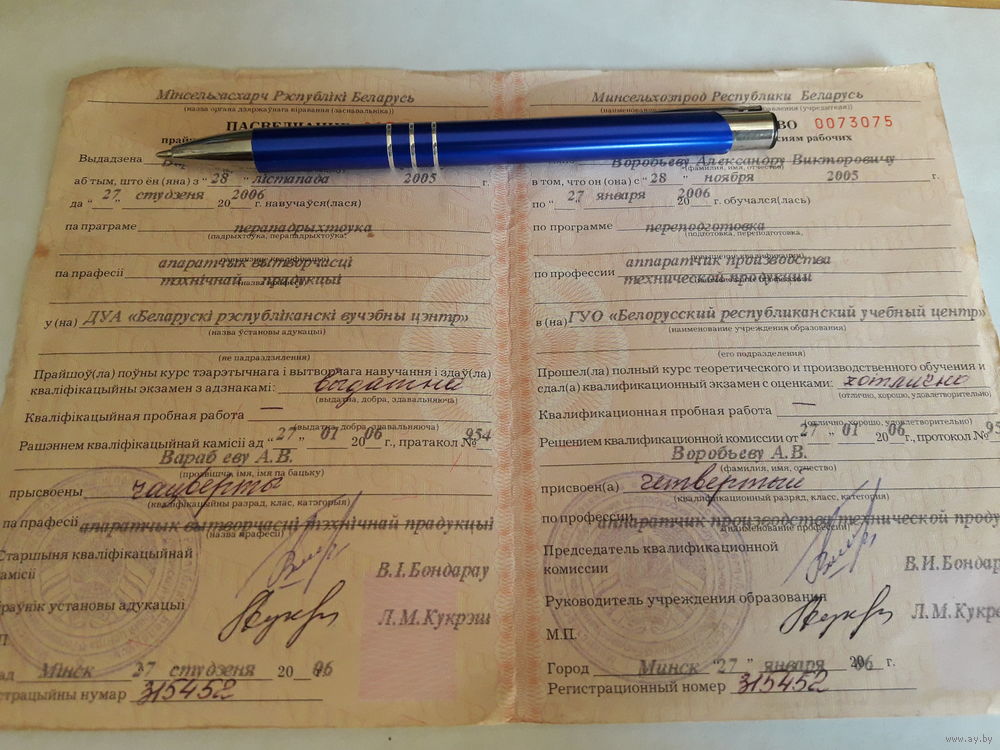 Мінсельгасхарч Рэспублікі Беларусь
(назва органа дзяржаўнага кіравання (заснавальніка))
ПАСВЕДЧАННЕ
Выдадзена
аб тым, што ён (яна) з "28" лістапада 2005 г.
да "27" студзеня 2006 20 г. навучаўся(лася)
па праграме перападрыхтоўка
(падрыхтоўка, перападрыхтоўка,
па прафесіі апаратчык вытворчасці
тэхнічнай прадукцыі
(назва прафесіі)
у (на) ДУА «Беларускі рэспубліканскі вучэбны цэнтр»
(назва ўстановы адукацыі)
(яе падраздзялення)
Прайшоў(ла) поўны курс тэарэтычнага і вытворчага навучання і здаў(ла)
кваліфікацыйны экзамен з адзнакамі: выдатна
(выдатна, добра, здавальняюча)
Кваліфікацыйная пробная работа —
(выдатна, добра, здавальняюча)
Рашэннем кваліфікацыйнай камісіі ад "27" 01 2006 г., пратакол № 954
Вараб'еву А.В.
(прозвішча, імя, імя па бацьку)
прысвоены чацверты
(кваліфікацыйны разрад, клас, катэгорыя)
па прафесіі апаратчык вытворчасці тэхнічнай прадукцыі
(назва прафесіі)
Старшыня кваліфікацыйнай
камісіі В.І.Бондарау
Кіраўнік установы адукацыі Л.М.Кукрэш
Мінск 27 студзеня 2006
315452
Минсельхозпрод Республики Беларусь
0073075
Воробьеву Александру Викторовичу
(фамилия, имя, отчество)
в том, что он (она) с "28" ноября 2005 г.
по "27" января 2006 20 г. обучался(лась)
по программе переподготовка
(подготовка, переподготовка,
повышение квалификации)
по профессии аппаратчик производства
технической продукции
в (на) ГУО «Белорусский республиканский учебный центр»
(наименование учреждения образования)
(его подразделения)
Прошел(ла) полный курс теоретического и производственного обучения и
сдал(а) квалификационный экзамен с оценками: отлично
(отлично, хорошо, удовлетворительно)
Квалификационная пробная работа —
(отлично, хорошо, удовлетворительно)
Решением квалификационной комиссии от "27" 01 2006 г., протокол № 95
Воробьеву А.В.
(фамилия, имя, отчество)
присвоен(а) четвертый
(квалификационный разряд, класс, категория)
по профессии аппаратчик производства технической проду
(наименование профессии)
Председатель квалификационной
комиссии В.И.Бондар
Руководитель учреждения образования Л.М.Кукре
М.П.
Город Минск "27" января 2006 г.
Регистрационный номер 315452
www.ay.by